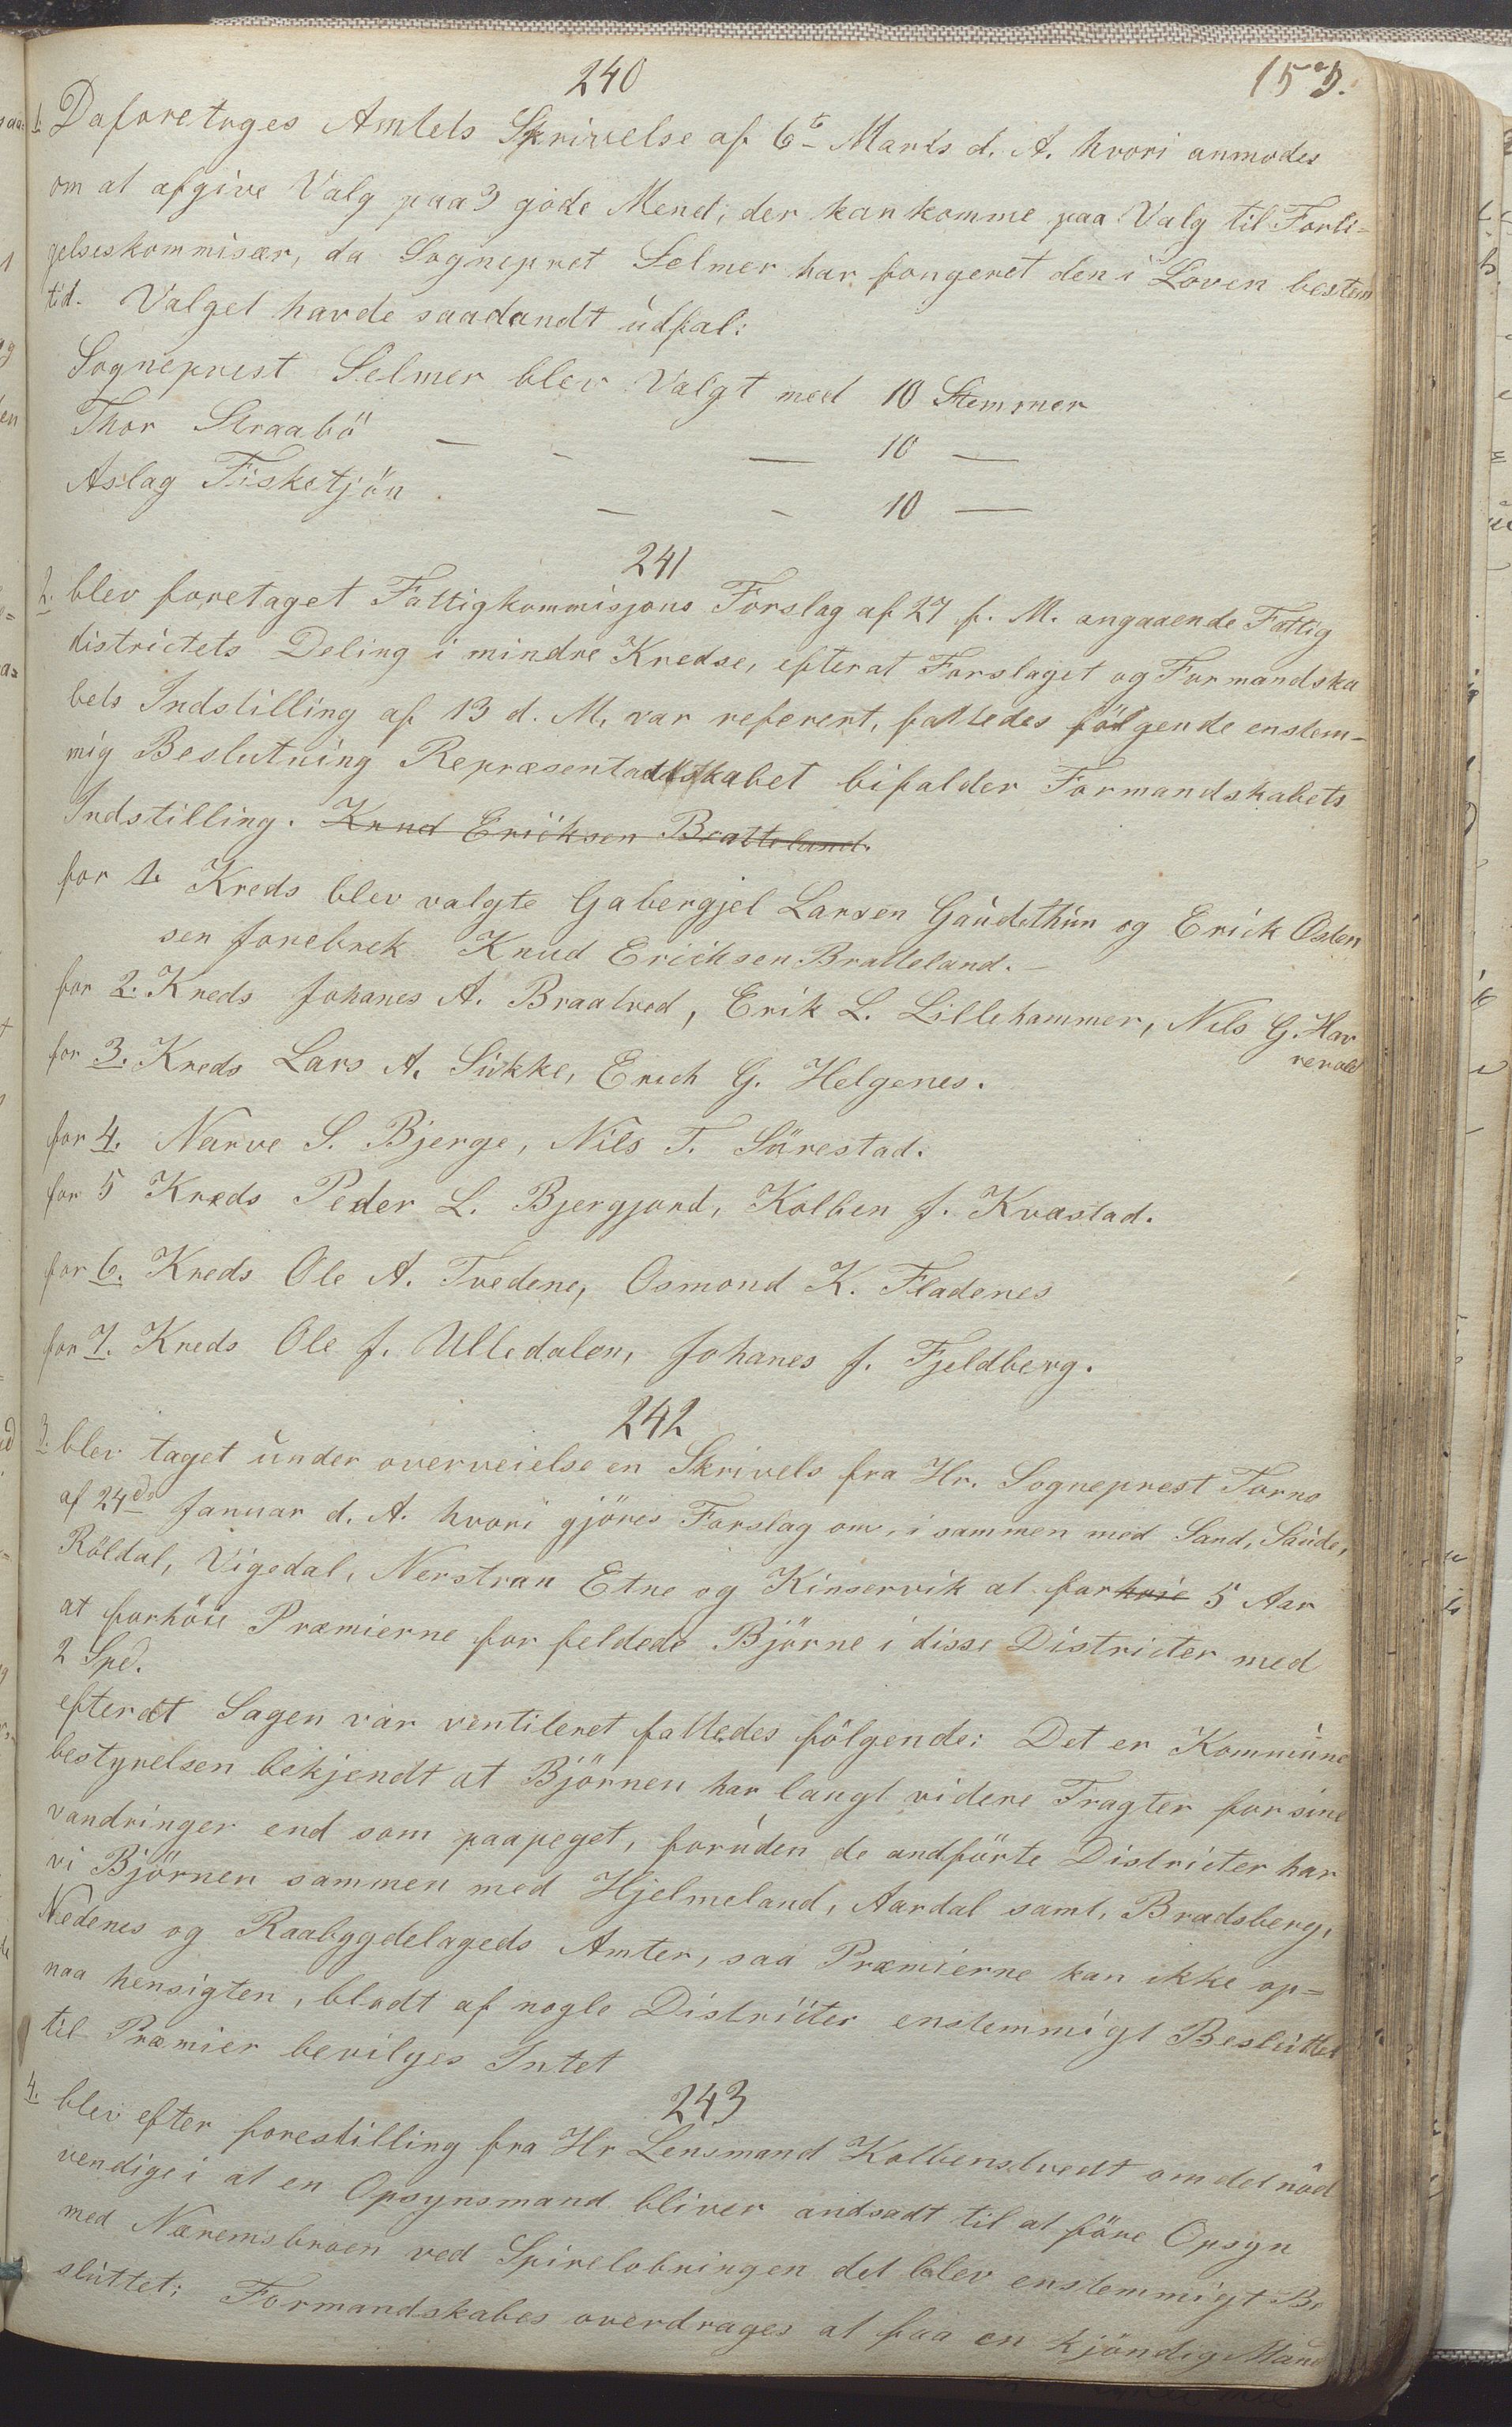 240
153.
1. Daforetoges Amtets Skrivelse af 6te Marts d. A. hvori anmodes
om at afgive Valg paa 3 gode Mend, der kan komme paa Valg til Forli=
gelseskommisær, da Sognepret Selmer har fongeret den i Loven bestem
tid. Valget havde saadandt udfal:
Sogneprest Selmer blev Valgt med 10 Stemmer
Thor Straabö — - — 10 —
Aslag Fisketjön — - 10 —
241
2. blev foretaget Fattigkommisjons Forslag af 27 f. M. angaaende Fattig
districtets Deling i mindre Kredse, efterat Forslaget og Formandska
bets Indstilling af 13 d. M, var referert, fattedes fölgende enstem=
mig Beslutning Repræsentadskabet bifalder Formandskabets
Indstilling. Knud Ericksen Bratteland.
for 1. Kreds blev valgte Gabergjel Larsen Gaudethun og Erick Osten
sen forebrek Knud Ericksen Bratteland. —
for 2. Kreds Johanes A. Braatved, Erik L. Lillehammer, Nils G. Hav
revold
for 3. Kreds Lars A. Sukke, Erich G. Helgenes.
for 4. Narve S. Bjerge, Nils T. Särestad.
for 5 Kreds Peder L. Bjergjord, Kolben J. Kvæstad.
for 6. Kreds Ole A. Tvedene, Osmond K. Fladenes
for 7. Kreds Ole J. Ulledalen, Johanes J. Fjeldberg.
242
3. blev taget under overveielse en Skrivels fra Hr. Sogneprest Torno
af 24de Januar d. A. hvori gjöres Forslag om, i sammen med Sand, Saude,
Röldal, Vigedal, Nerstran Etne og Kinservik at forhoie 5 Aar
at forhöie Præmierne for feldede Björne i disse Districter med
2 Spd.
efterat Sagen var ventileret fattedes fölgende: Det er Kommune
bestyrelsen bekjendt at Björnen har langt videre Tragter for sine
vandringer end som paapeget, foruden de andförte Districter har
vi Björnen sammen med Hjelmeland, Aardal samt, Bradsberg,
Nedenes og Raabygdelageds Amter, saa Præmierne kan ikke op=
naa hensigten, bladt af nogle Districter enstemmigt Besluttet
til Præmier bevilges Intet
243
4. blev efter forestilling fra Hr Lensmand Kolbenstvedt om det nöd
vendige i at en Opsynsmand bliver andsadt til at före Opsyn
med Næremsbroen ved Spirelobringen det blev enstemmigt Be
sluttet: Formandskabes overdrages at faa en kjöndig Mand